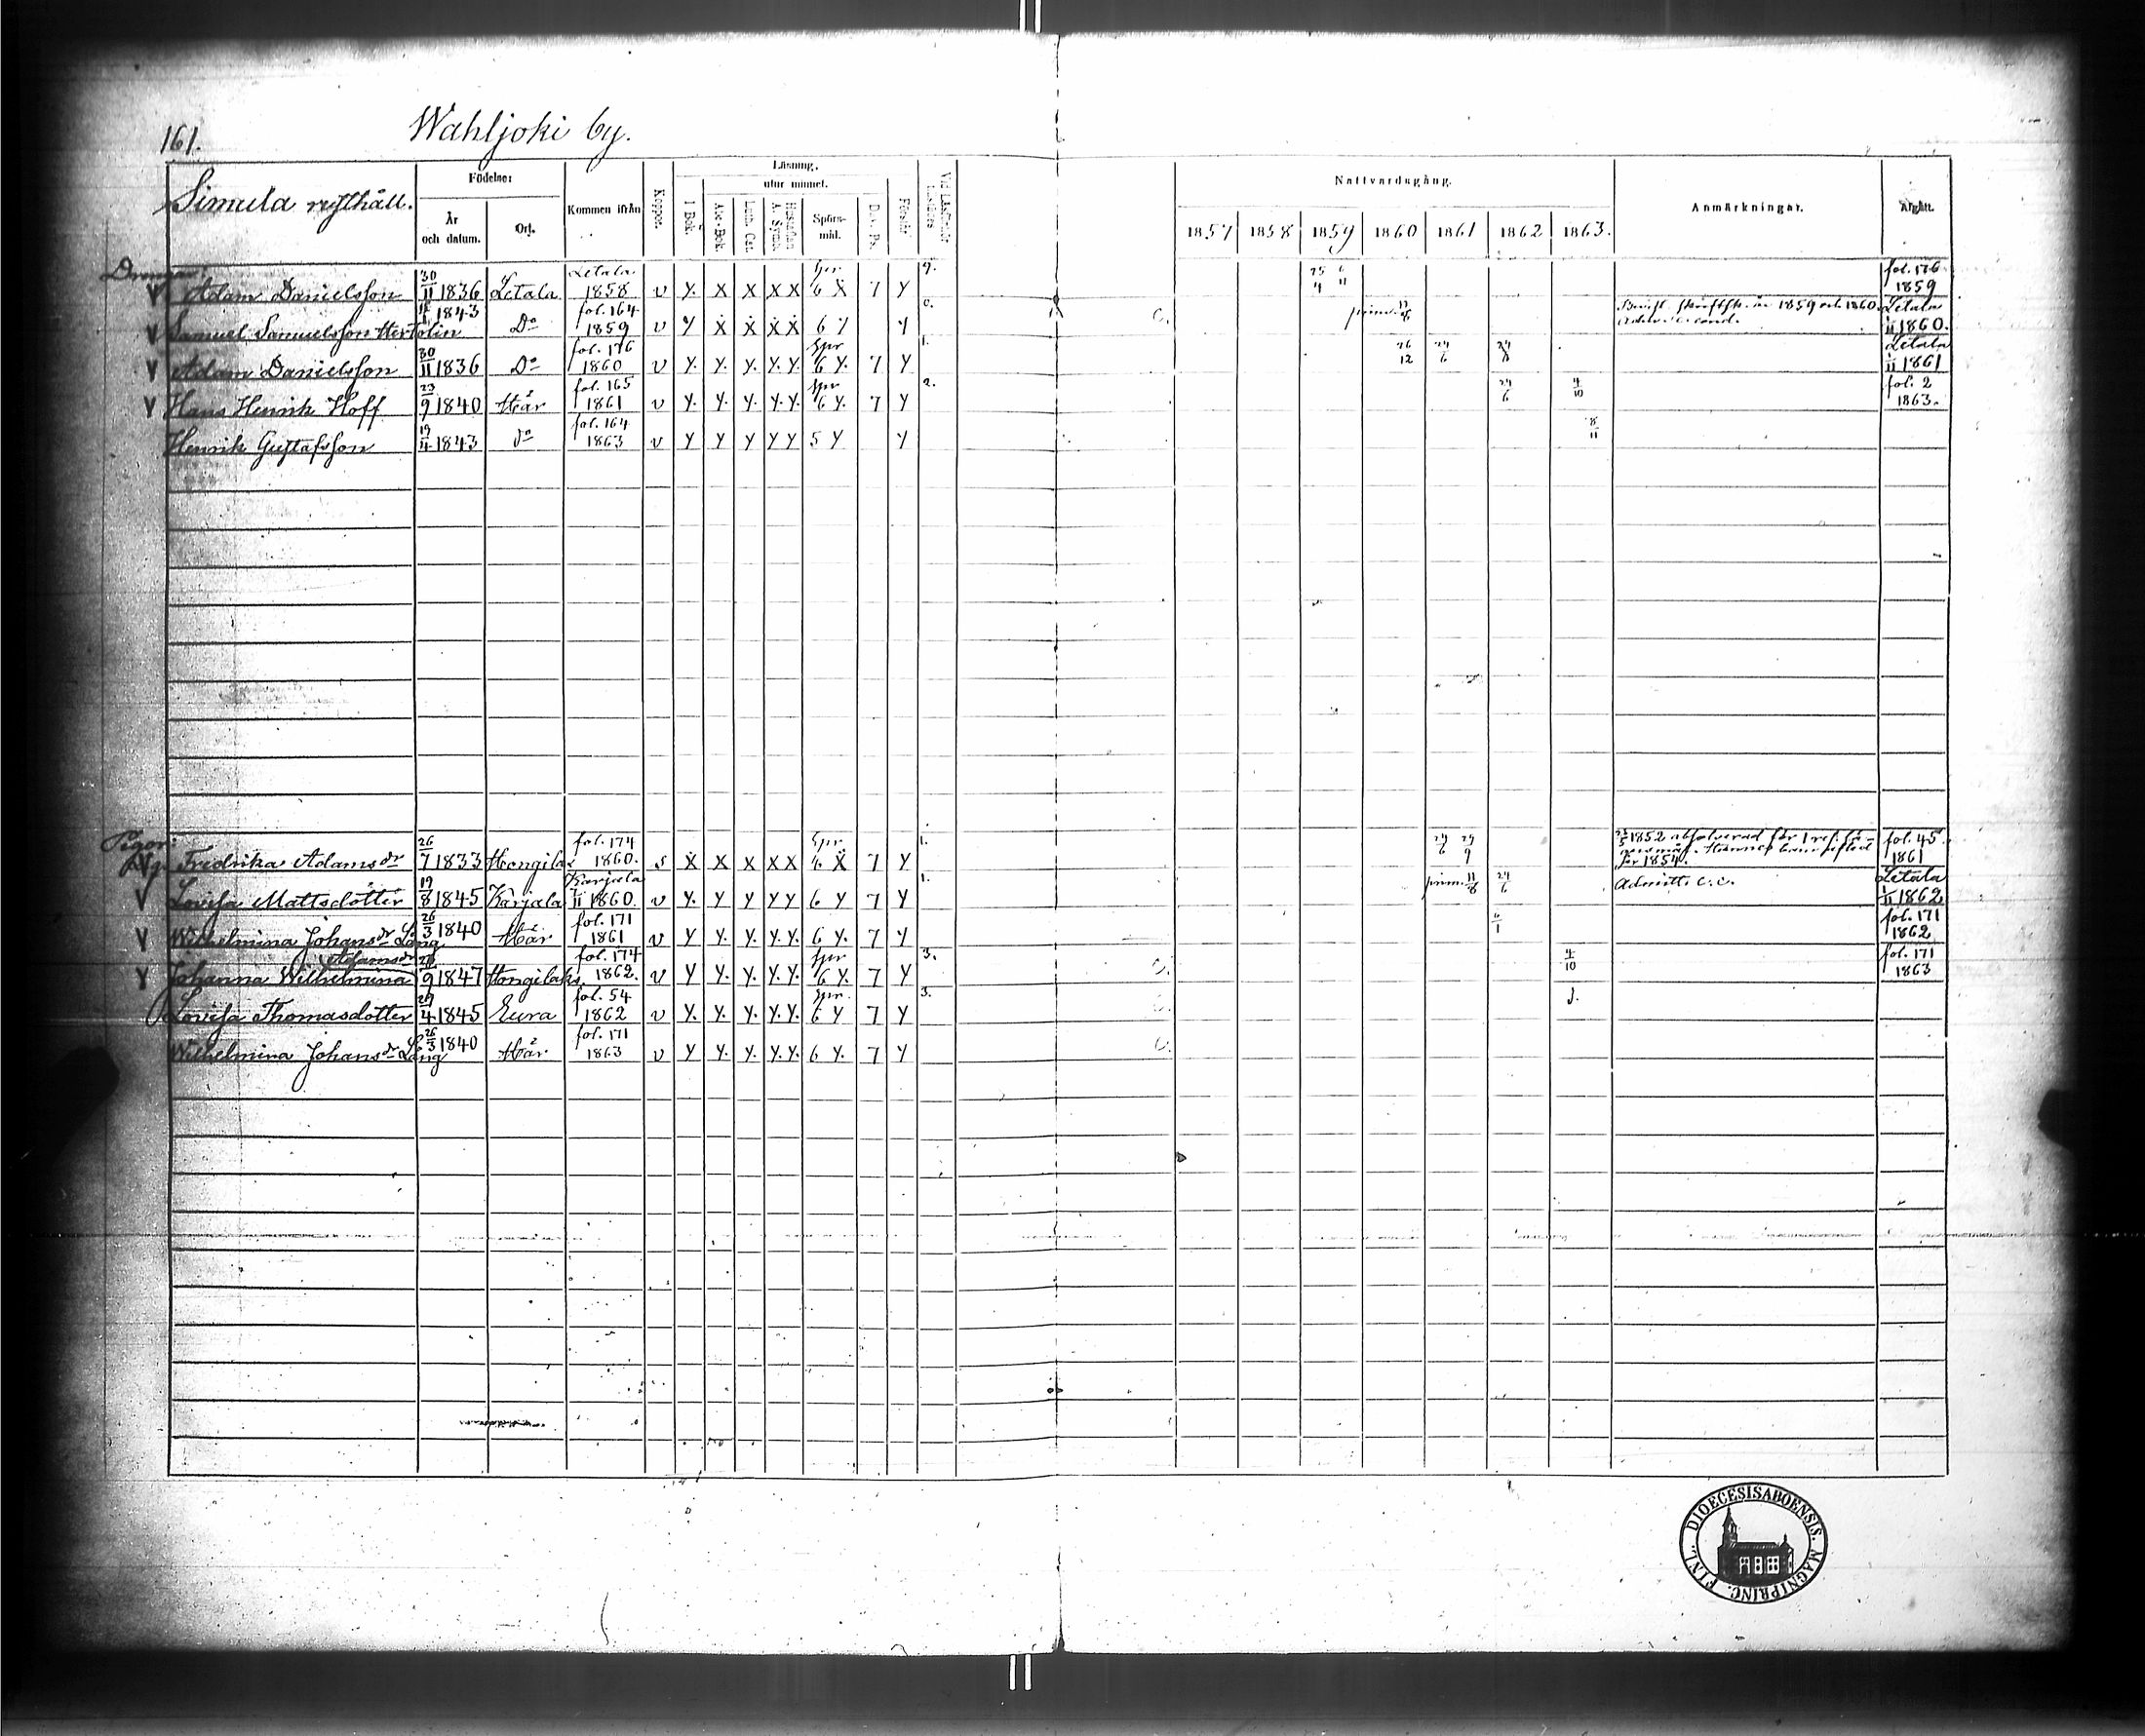 161. Wahljoki by.
Simula rusthåll.
Födelse:
År och datum.
Ort.
Kommen ifrån
Koppor.
Läsning,
utur minnet.
I Bok.
Abc-Bok.
Luth. Cat.
Hustaflan A. Symb.
Spörsmål.
Dav. Ps.
Förstår
Nattvardsgång.
1857 1858 1859 1860 1861 1862 1863.
Anmärkningar.
Afgått.
Drengar:
V Adam Danielsson 30/11 1836 Letala Letala 1858 v y. x x x x Spr 6 x 7 y 9. fol. 176 1859
V Samuel Samuelsson Hertolin 1843 Do fol. 164 1859 v y x x x x 6 y y 0. 1859 och 1860. Letala 1860.
V Adam Danielsson 30/11 1836 Do fol. 176 1860 v y. y. y. y. y. Spr 6 y. 7 y 1. 26/12 24/6 Letala 1861
V Hans Henrik Hoff 23/9 1840 Här fol. 165 1861 v y. y. y. y. y. Spr 6 y. 7 y 2. 24/6 4/10 fol. 2 1863.
Henrik Gustafsson 19/4 1843 do fol. 164 1863 v y y y y y 5 y y 8/11
Pigor:
Fredrika Adamsdr 26/7 1833 Hongila fol. 174 1860. s x x x x x Spr 6 x 7 y 1. 24/6 29/9 1852 absolverad för 1 ref. lä- för 1854. fol. 45 1861
V Lovisa Mattsdotter 19/8 1845 Karjala Karjala 1860. v y. y y y y 6 y 7 y 1. 24/6 Admitt. c. c. Letala 1862
V Wilhelmina Johansdr Lång 26/3 1840 Här fol. 171 1861 v y y. y. y. y. 6 y. 7 y 6/1 fol. 171 1862
V Johanna Wilhelmina Adamsdr 9 1847 Hongilaks fol. 174 1862. v y y. y. y. y. Spr 6 y. 7 y 3. 4/10 fol. 171 1863
Lovisa Thomasdotter 4 1845 Eura fol. 54 1862 v y. y. y. y. y. Spr. 6 y 7 y 3.
Wilhelmina Johansdr Lång 26/3 1840 Här fol. 171 1863 v y y. y. y. y. 6 y. 7 y
DIOECESIS ABOENSIS. MAGNI PRINC. FINL.